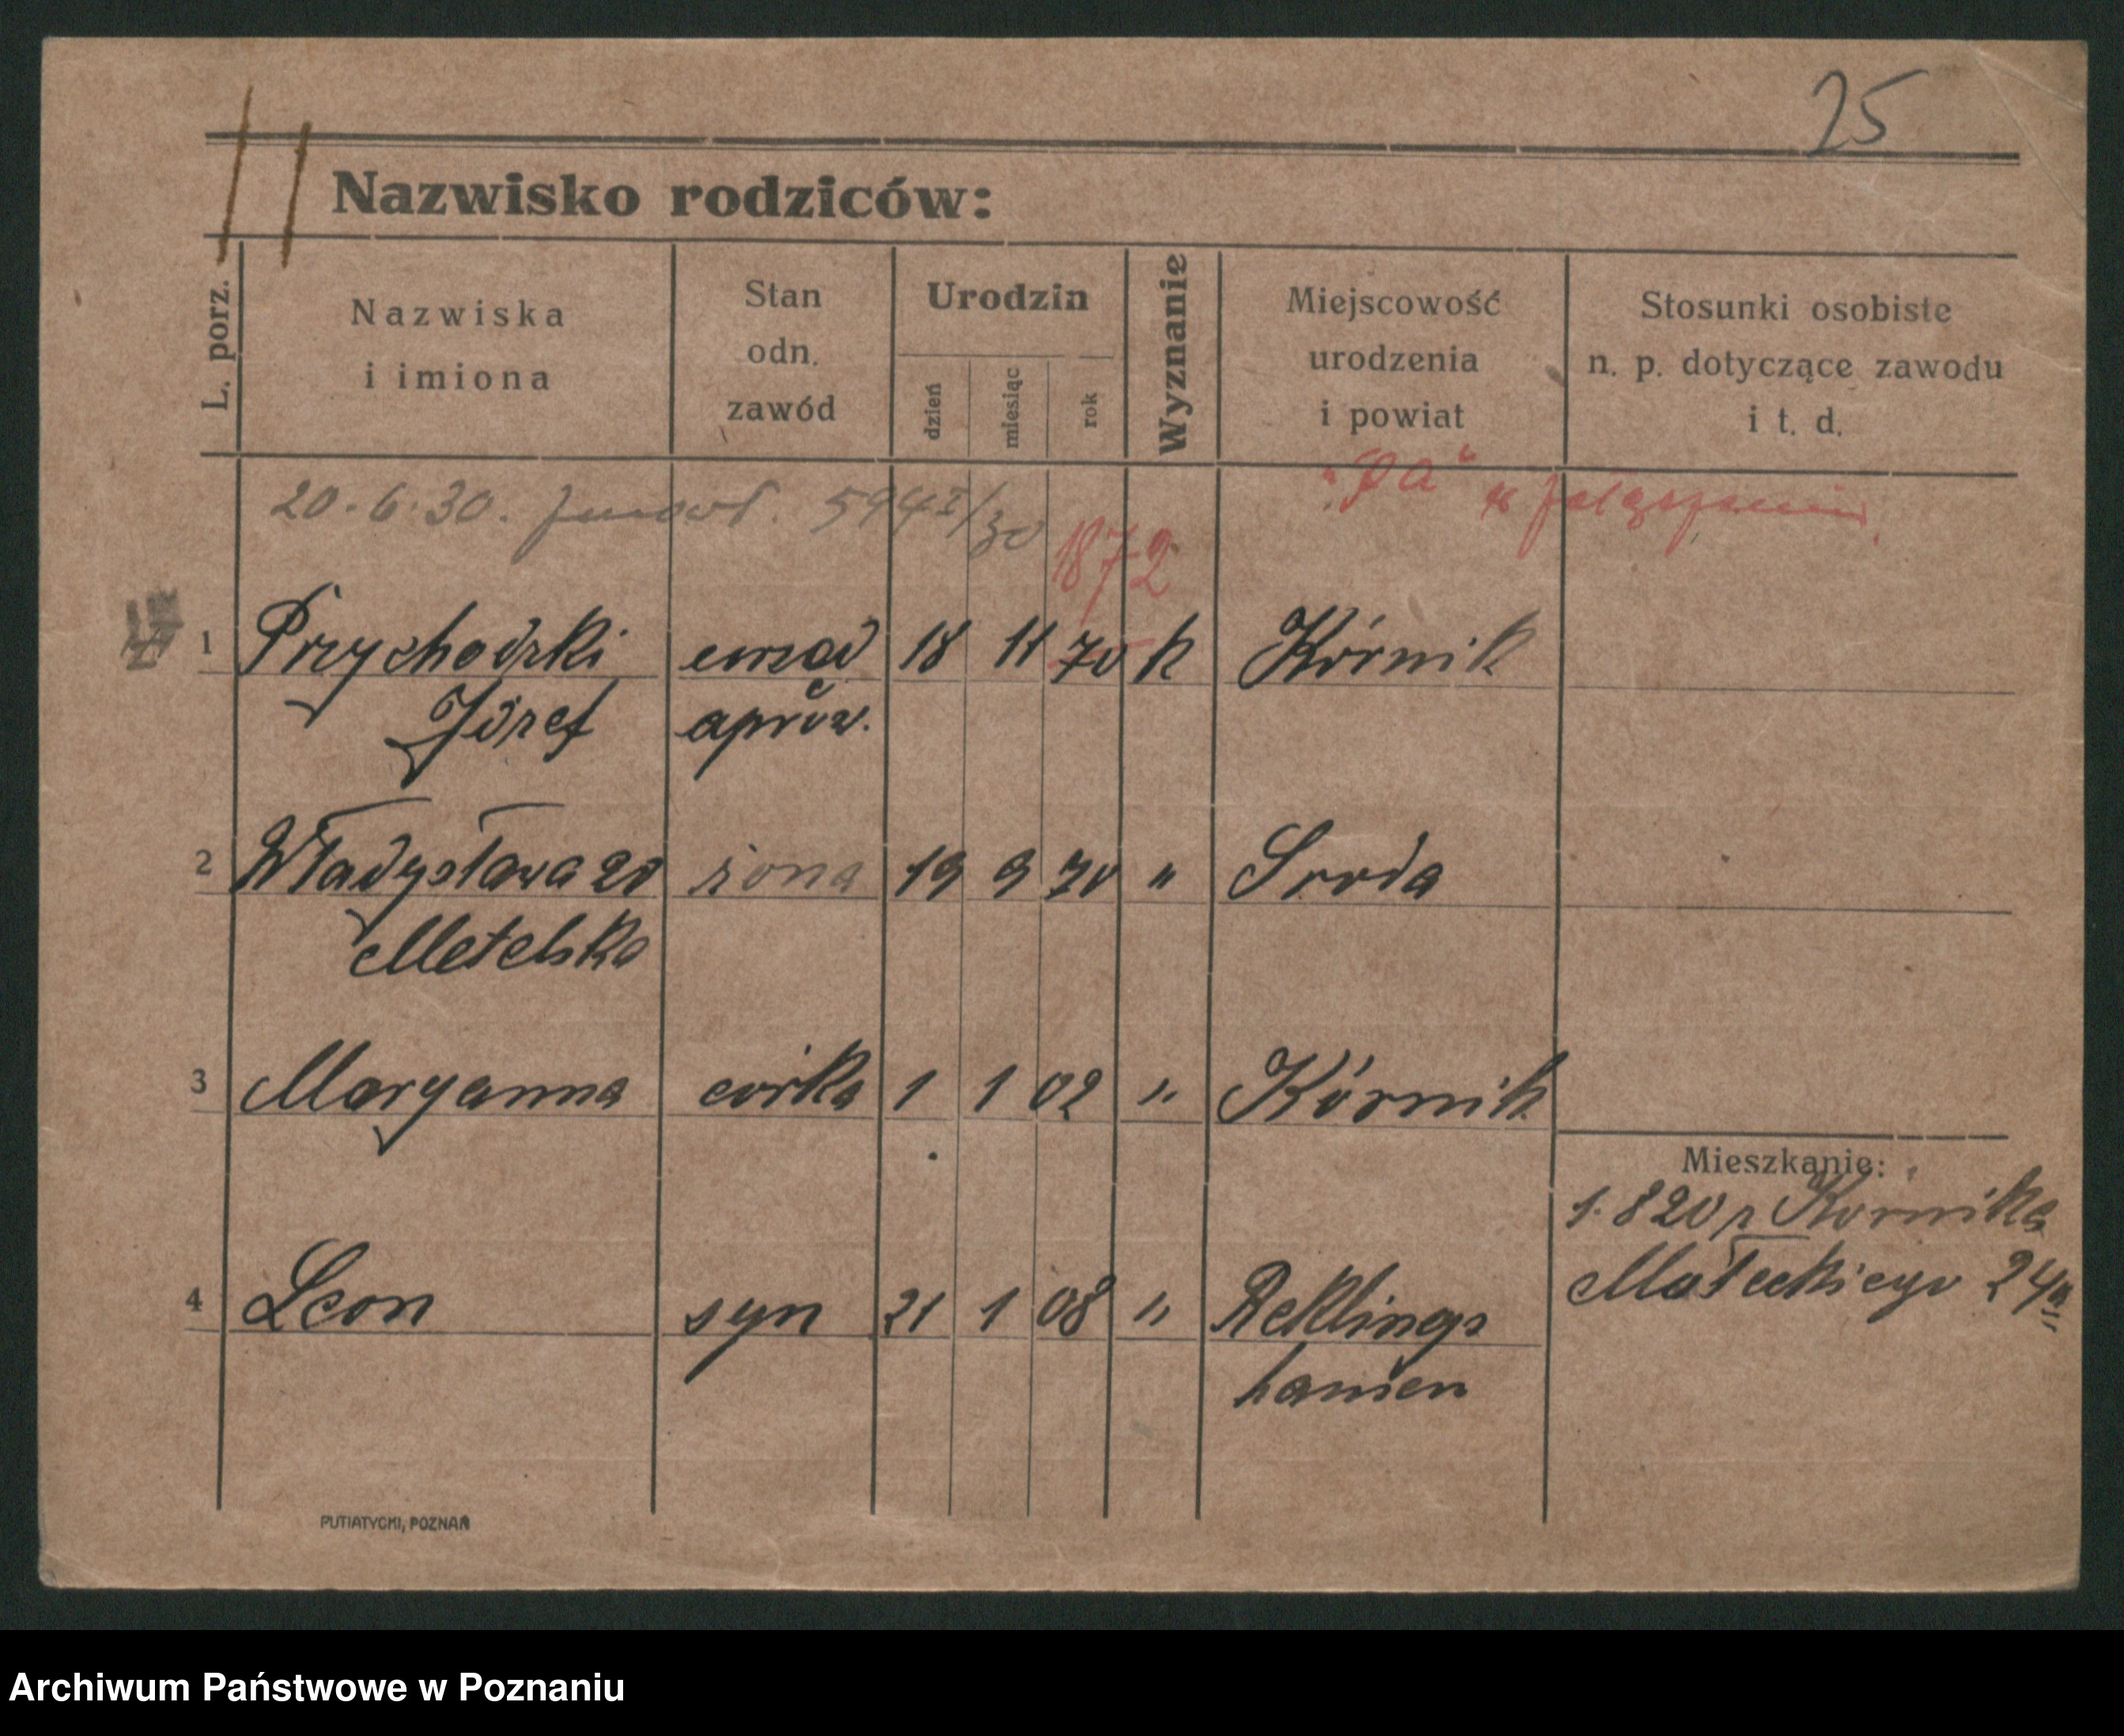 25
Nazwisko rodziców:
L. porz.
Nazwiska
i imiona
Stan
odn.
zawód
Urodzin
dzień
miesiąc
rok
Wyznanie
Miejscowość
urodzenia
i powiat
Stosunki osobiste
n. p. dotyczące zawodu
i t. d.
20.6.30. 594I/30
1872
1 Przychodzki 18 11 70 k Kórnik
Józef aprow.
2 Władysława zd żona 19 9 70 " Sroda
Metelska
3 Maryanna córka 1 1 02 " Kórnik
Mieszkanie:
1.8 20 z Kórnika
4 Leon syn 21 1 08 " Reklings
Małeckiego 24
hausen
PUTIATYCKI, POZNAŃ
Archiwum Państwowe w Poznaniu